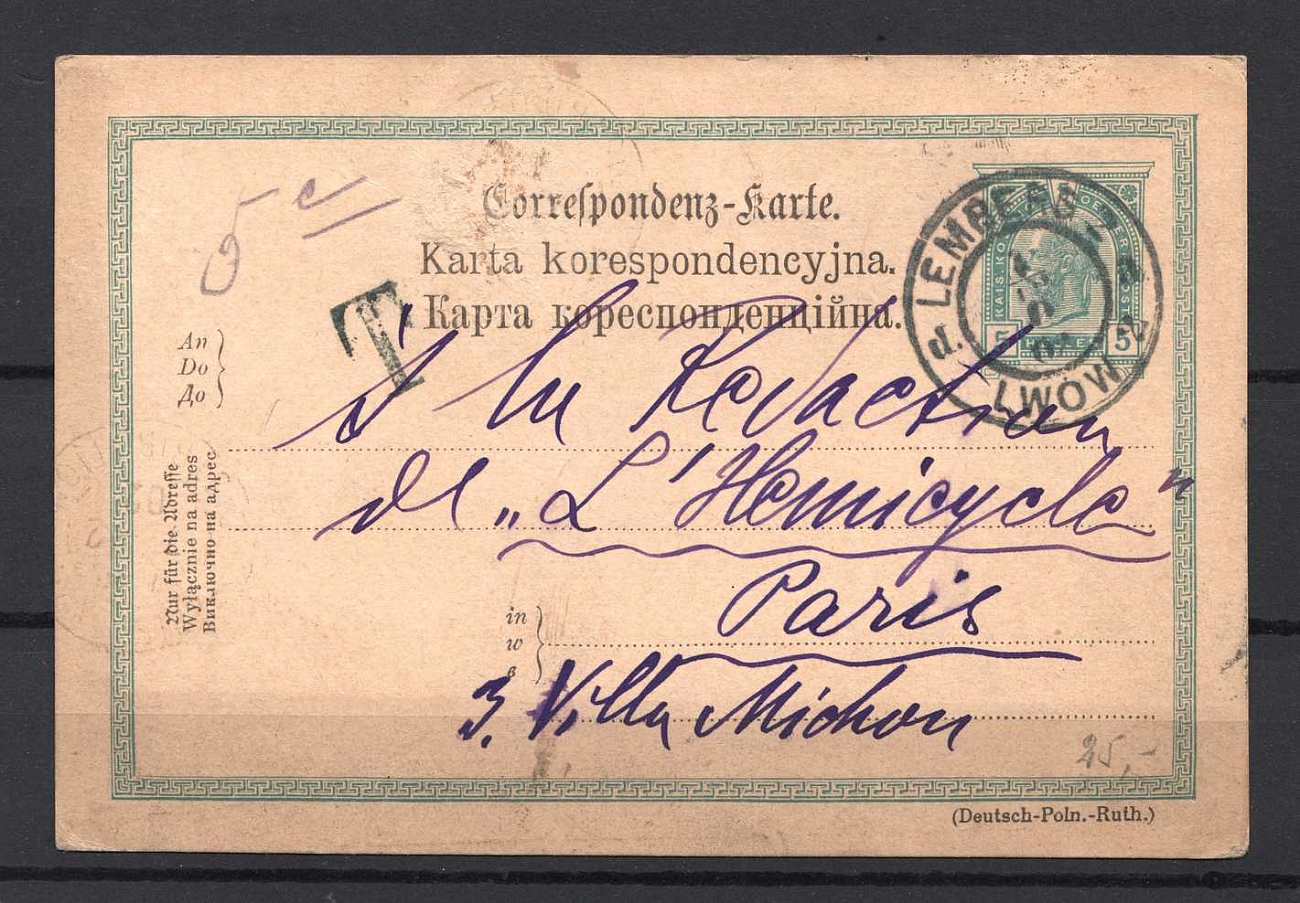 Correspondenz-Karte.
Karta korespondencyjna.
Карта кореспонденційна.
5 c
T
KAIS. KO
5 HELLER 5
LEMBERG 2
LWÓW
An
Do
До
à la Redaction
de „L'Hemicycle"
in
w
в
Paris
3. Villa Michon
Nur für die Adresse
Wyłącznie na adres
Виключно на адрес
25,-
(Deutsch-Poln.-Ruth.)